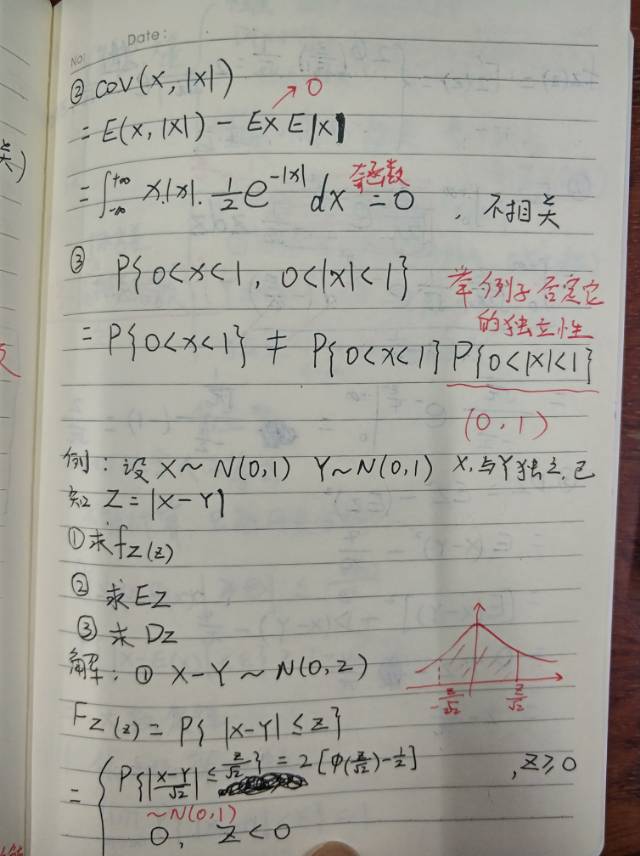 No:
Date:
② cov(X, |X|)
= E(X, |X|) - EX E|X| → 0
= ∫_{-∞}^{+∞} x.|x|. 1/2 e^{-|x|} dx 奇函数 = 0 , 不相关
③ P{0<X<1, 0<|X|<1}
举例子否定它
的独立性
= P{0<X<1} ≠ P{0<X<1} P{0<|X|<1}
(0,1)
例: 设 X~N(0,1) Y~N(0,1) X,与Y独立,已
知 Z=|X-Y|
①求f_Z(z)
② 求EZ
③ 求DZ
解: ① X-Y~N(0,2)
F_Z(z) = P{ |X-Y| ≤ z}
-z/√2 z/√2
= { P{|X-Y/√2| ≤ z/√2} = 2[Φ(z/√2)-1/2] , z≥0
~N(0,1)
0, z<0